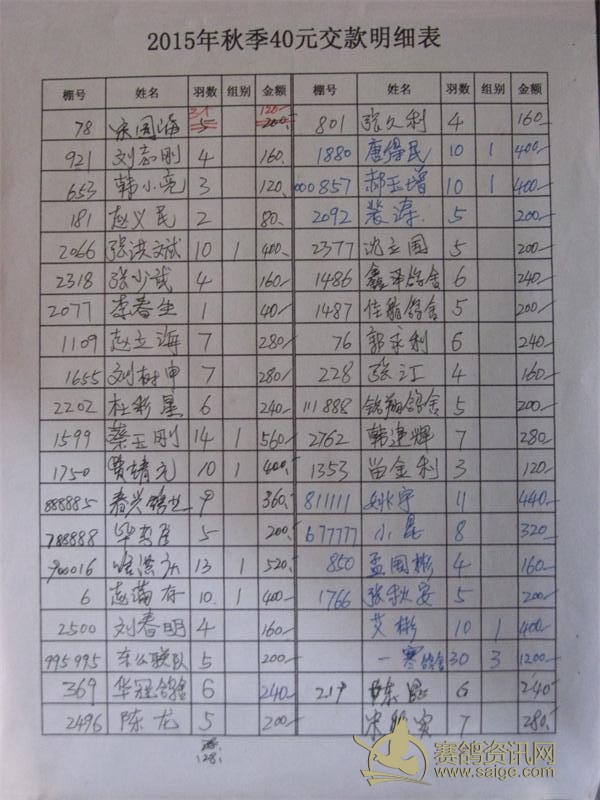 2015年秋季40元交款明细表
棚号 姓名 羽数 组别 金额 棚号 姓名 羽数 组别 金额
78 宋国海 5 31 200 120 801 张久利 4 160
921 刘志刚 4 160 1880 唐得民 10 1 400
653 韩小亮 3 120 000857 郝玉增 10 1 400
181 赵义民 2 80 2092 裴涛 5 200
2066 张洪斌 10 1 400 2377 沈立国 5 200
2318 张少武 4 160 1486 鑫泽鸽舍 6 240
2077 李春生 1 40 1487 佳翔鸽舍 5 200
1109 赵立海 7 280 76 郭永利 6 240
1655 刘树申 7 280 228 张江 4 160
2202 杜彩星 6 240 111888 鸽舍 5 200
1599 蔡玉刚 14 1 560 2762 韩建辉 7 280
1750 贾靖元 10 1 400 1353 苗金利 3 120
888885 春兴鸽业 9 360 811111 姚宇 11 440
788888 5 200 677777 小昆 8 320
900016 13 1 520 850 孟国彬 4 160
6 赵满存 10 1 400 1766 张秋安 5 200
2500 刘春明 4 160 艾彬 10 1 400
995995 东公联队 5 200 一寒鸽舍 30 3 1200
369 华冠鸽舍 6 240 219 陈 6 240
2496 陈龙 5 200 宋 7 280
128
赛鸽资讯网
www.saige.com